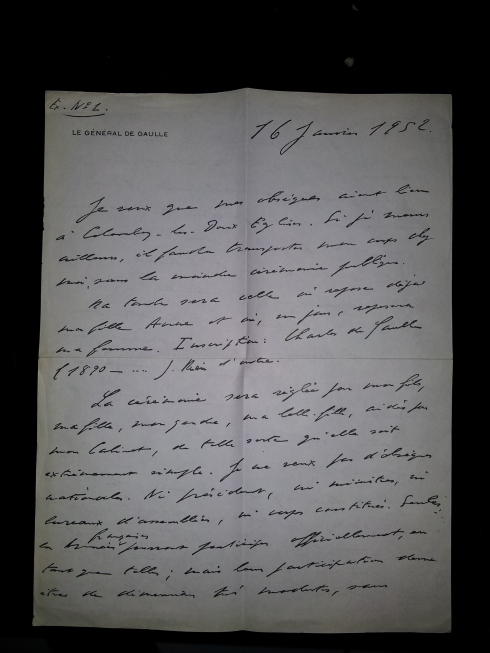 Ex. No 2.
LE GÉNÉRAL DE GAULLE
16 Janvier 1952.
Je veux que mes obsèques aient lieu
à Colombey-les-Deux Eglises. Si je meurs
ailleurs, il faudra transporter mon corps chez
moi, sans la moindre cérémonie publique.
Ma tombe sera celle où repose déjà
ma fille Anne et où, un jour, reposera
ma femme. Inscription: Charles de Gaulle
(1890 – .... ). Rien d'autre.
La cérémonie sera réglée par mon fils,
ma fille, mon gendre, ma belle-fille, aidés par
mon Cabinet, de telle sorte qu'elle soit
extrêmement simple. Je ne veux pas d'obsèques
nationales. Ni président, ni ministres, ni
bureaux d'assemblées, ni corps constitués. Seules,
françaises
les Armées pourront participer officiellement, en
tant que telles; mais leur participation devra
être de dimension très modeste, sans